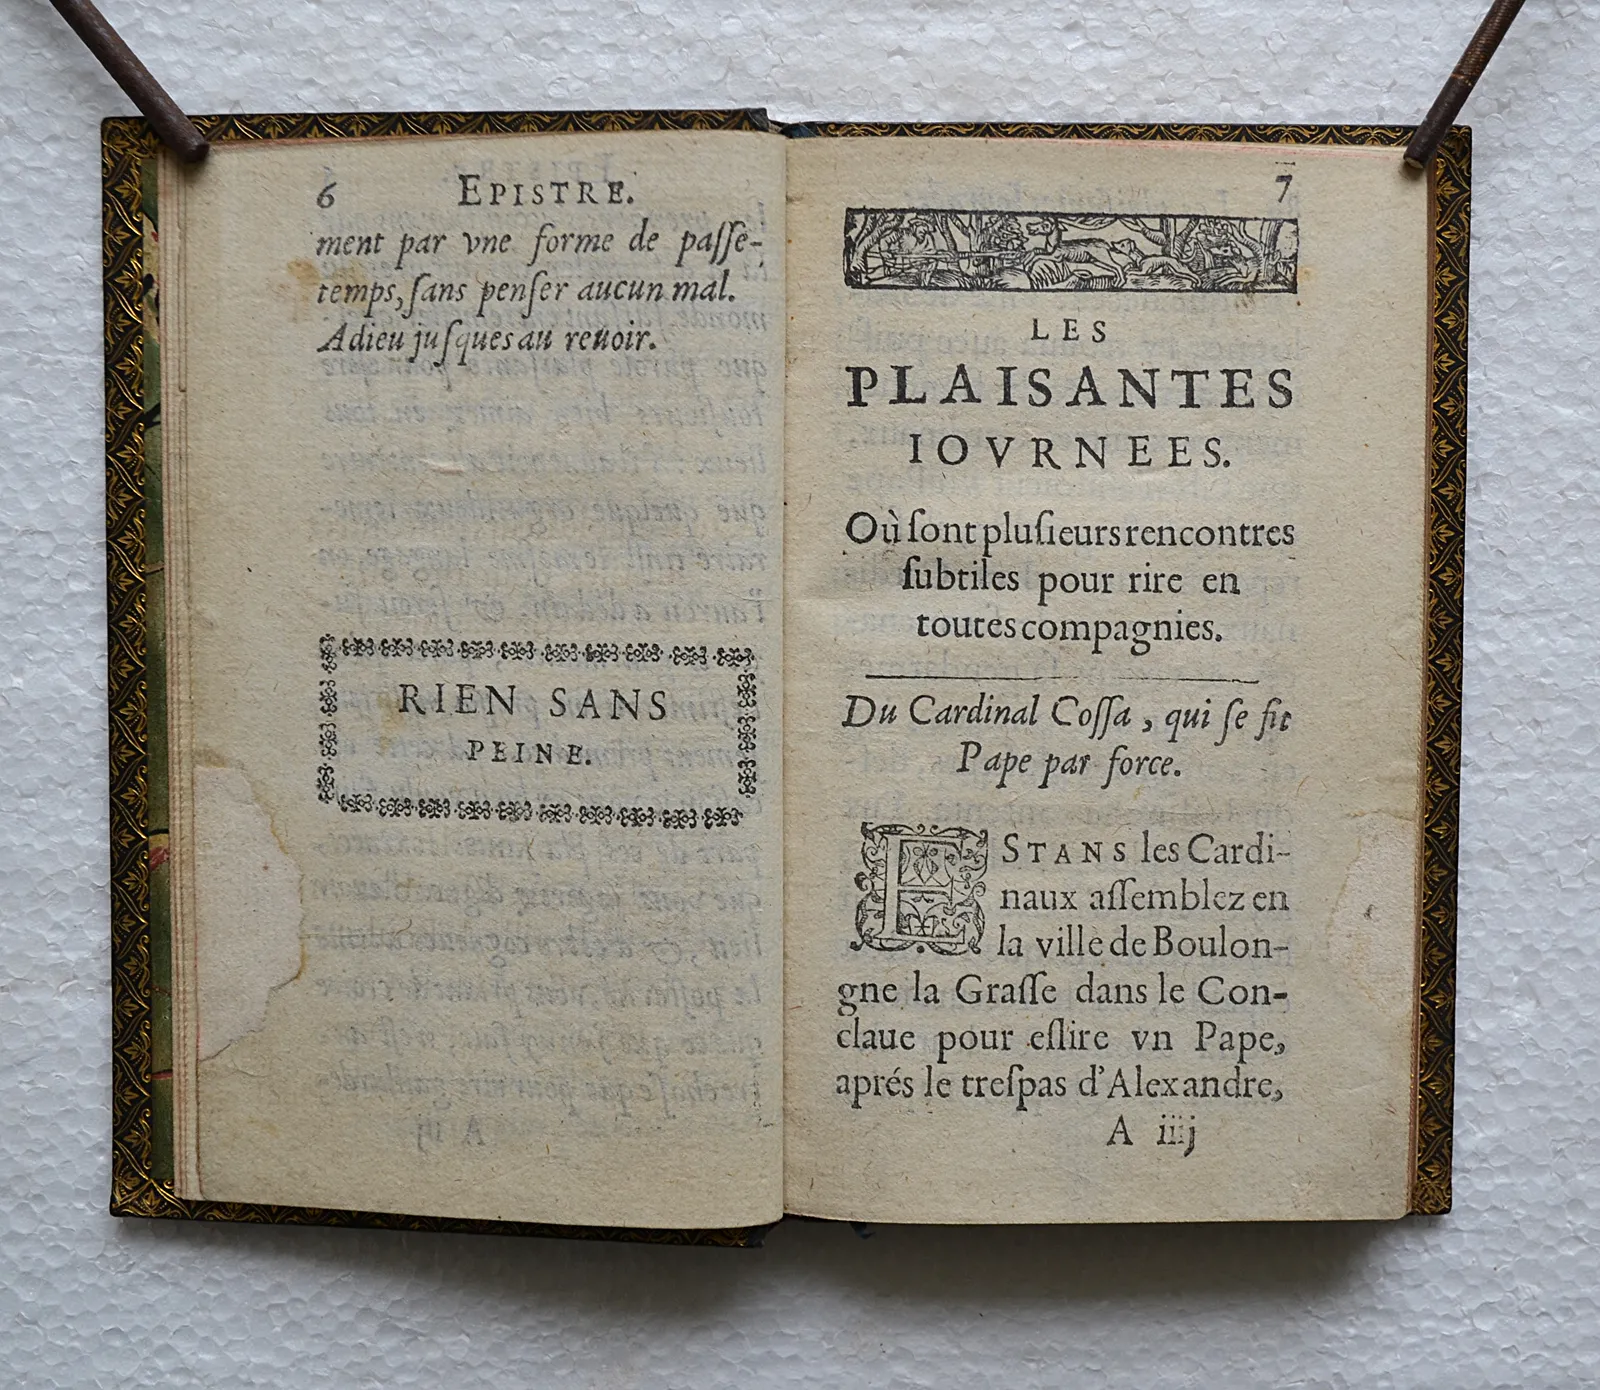 6 EPISTRE.
ment par vne forme de paſſe-
temps, ſans penſer aucun mal.
Adieu juſques au reuoir.
RIEN SANS
PEINE.
7
LES
PLAISANTES
IOVRNEES.
Où ſont pluſieurs rencontres
ſubtiles pour rire en
toutes compagnies.
Du Cardinal Coſſa, qui ſe fit
Pape par force.
ESTANS les Cardi-
naux aſſemblez en
la ville de Boulon-
gne la Graſſe dans le Con-
claue pour eſlire vn Pape,
aprés le treſpas d'Alexandre,
A iiij